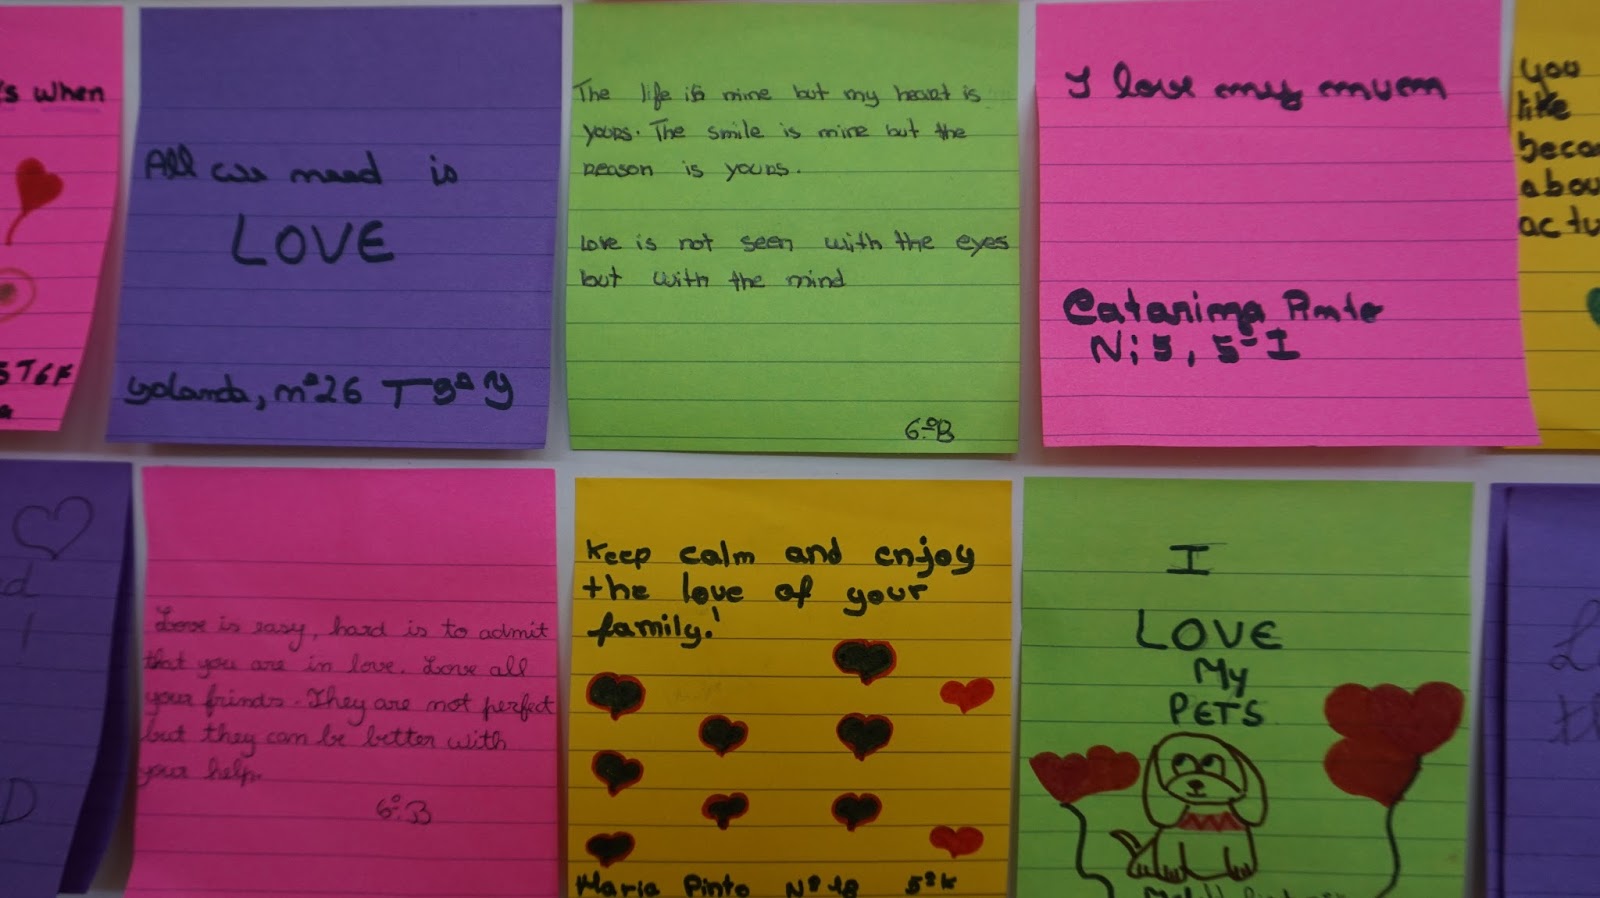 's when
5 T6F
All we need is
LOVE
Yolanda, nº26 T 5º
The life is mine but my heart is
yours. The smile is mine but the
reason is yours.
Love is not seen with the eyes
but with the mind
6.ºB
I love my mum
Catarina Pinto
N: 5, 5º I
you
like
beca
abou
actu
d
D
Love is easy, hard is to admit
that you are in love. Love all
your frinds. They are not perfect
but they can be better with
your help.
6º B
Keep calm and enjoy
the love of your
family!
Maria Pinto Nº 18 5ºK
I
LOVE
My
PETS
L
th